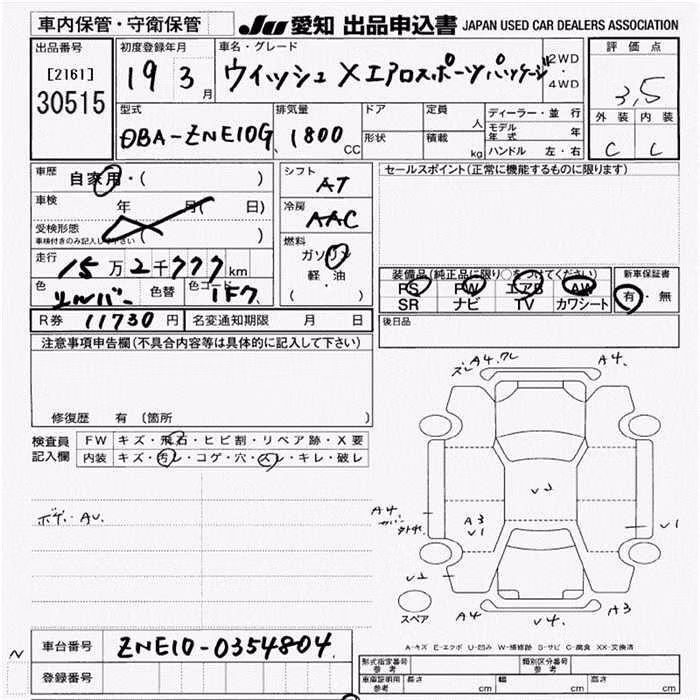 車内保管・守衛保管
JU 愛知 出品申込書 JAPAN USED CAR DEALERS ASSOCIATION
出品番号
[2161]
30515
初度登録年月
19 3月
車名・グレード
ウィッシュ Xエアロスポーツパッケージ
2WD
・
4WD
評価点
3,5
外装 内装
C C
型式
DBA-ZNE10G
排気量
1800 CC
ドア
形状
定員 人
積載 kg
ディーラー・並行
モデル年式 年
ハンドル 左・右
車歴
自家用・( )
車検 年 月( 日)
受検形態
車検付きのみ記入して下さい ( )
走行 15万2千777km
色 シルバー 色替 色コード 1F7
シフト
AT
冷房
AAC
燃料
ガソリン
軽・油
( )
セールスポイント(正常に機能するものに限ります)
装備品(純正品に限り○をつけてください)
PS PW エアB AW
SR ナビ TV カワシート
新車保証書
有・無
R券 11730円 名変通知期限 月 日
後日品
注意事項申告欄(不具合内容等は具体的に記入して下さい)
修復歴 有 〔箇所
検査員
記入欄
FW キズ・飛石・ヒビ割・リペア跡・X要
内装 キズ・汚レ・コゲ・穴・スレ・キレ・破レ
ボデーAU.
A4.ワレ
ズレ
A4.
V2
A4
A3
V1
V1
V2
A4
V4.
A3
スペア
A-キズ E-エクボ U-凹み W-補修跡 S-サビ C-腐食 XX-交換済
N
車台番号 ZNE10-0354804
登録番号
形式指定番号
参考
類別区分番号
参考
車庫証明用
参考
長さ cm 幅 cm 高さ cm